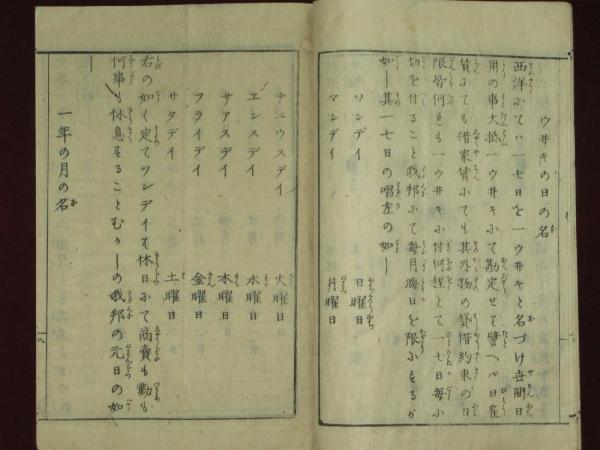 ウ井キの日の名
西洋にてハ一七日を一ウ井キと名づけ世間日
用の事大抵一ウ井キにて勘定せり譬へバ日雇
賃にても借家賃にても其外物の貸借約束の日
限皆何れも一ウ井キに付何程とて一七日毎に
切を付ること我邦にて毎月晦日を限にするが
如し其一七日の唱左の如し
ソンデイ 日曜日
マンデイ 月曜日
チュウスデイ 火曜日
エンスデイ 水曜日
サアスデイ 木曜日
フライデイ 金曜日
サタデイ 土曜日
右の如く定てソンデイは休日にて商賣も勤も
何事も休息することむかしの我邦の元日の如
し
一年の月の名